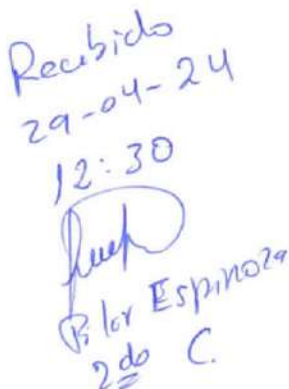 Recibido
29-04-24
12:30
Pilar Espinoza
2do C.